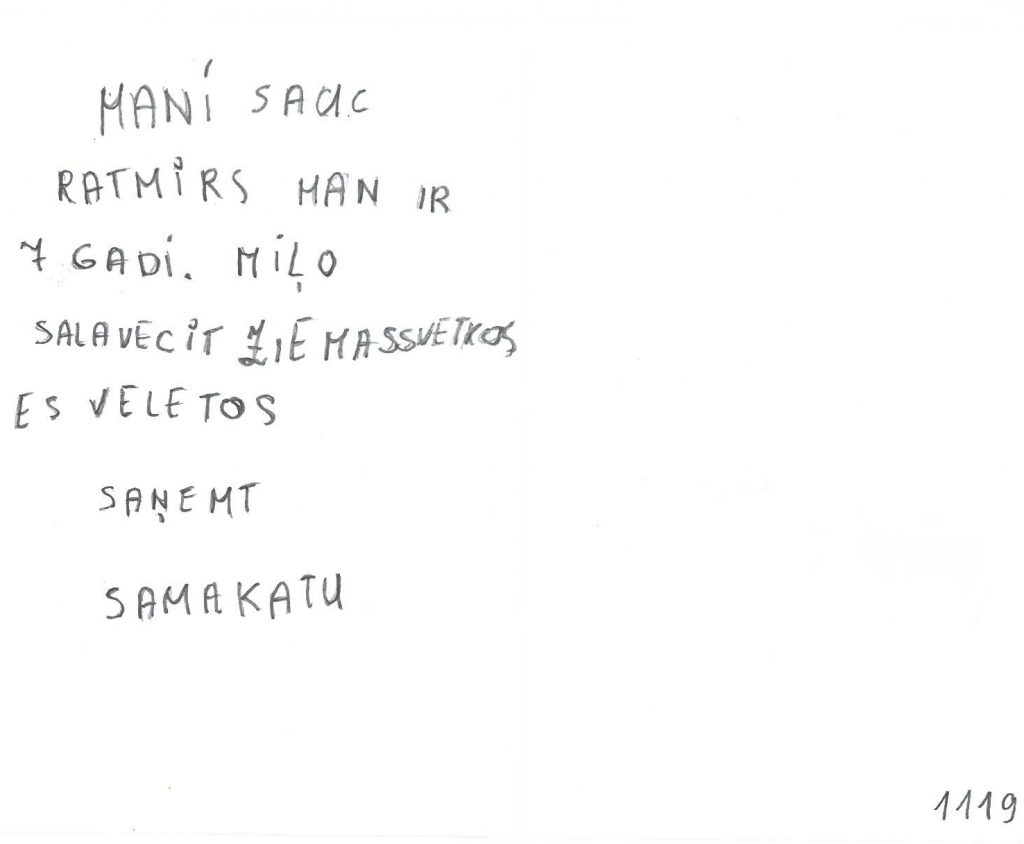 MANI SAUC
RATMIRS MAN IR
7 GADI. MIĻO
SALAVECIT ZIEMASSVETKOS
ES VELETOS
SAŅEMT
SAMAKATU
1119